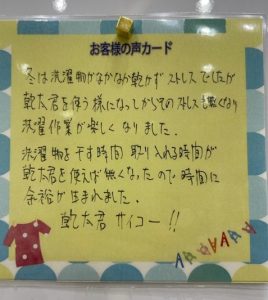 お客様の声カード
冬は洗濯物がなかなか乾かずストレスでしたが
乾太君を使う様になってからそのストレスも無くなり
洗濯作業が楽しくなりました.
洗濯物を干す時間 取り入れる時間が
乾太君を使えば無くなったので時間に
余裕が生まれました.
乾太君サイコー!!